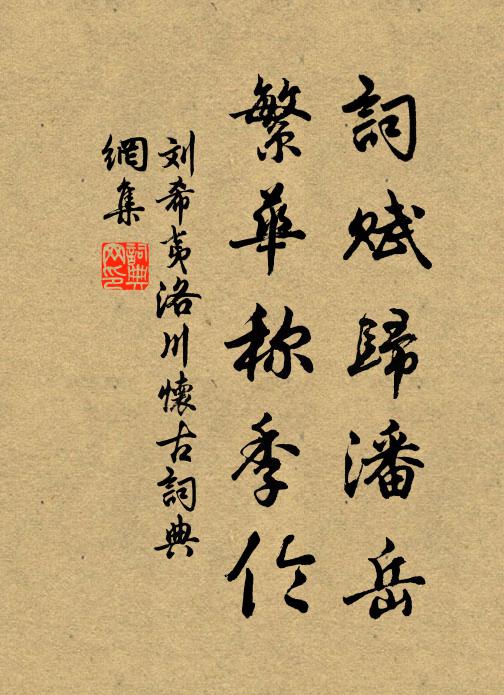 詞賦歸潘岳
繁華称季伦
刘希夷洛川懷古詞典
網集
詞典
网印